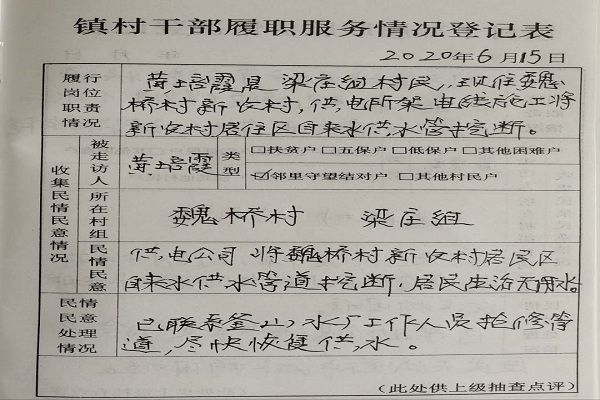 镇村干部履职服务情况登记表
2020年6月15日
履行岗位职责情况
黄培霞是梁庄组村民，现住魏
桥村新农村，供电所架电线施工将
新农村居住区自来水供水管挖断。
收集民情民意情况
被走访人
黄培霞
类型
□扶贫户 □五保户 □低保户 □其他困难户
☑邻里守望结对户 □其他村民户
所在村组
魏桥村 梁庄组
民情民意
供电公司将魏桥村新农村居民区
自来水供水管道挖断，居民生活无用水。
民情民意处理情况
已联系釜山水厂工作人员抢修管
道，尽快恢复供水。
（此处供上级抽查点评）